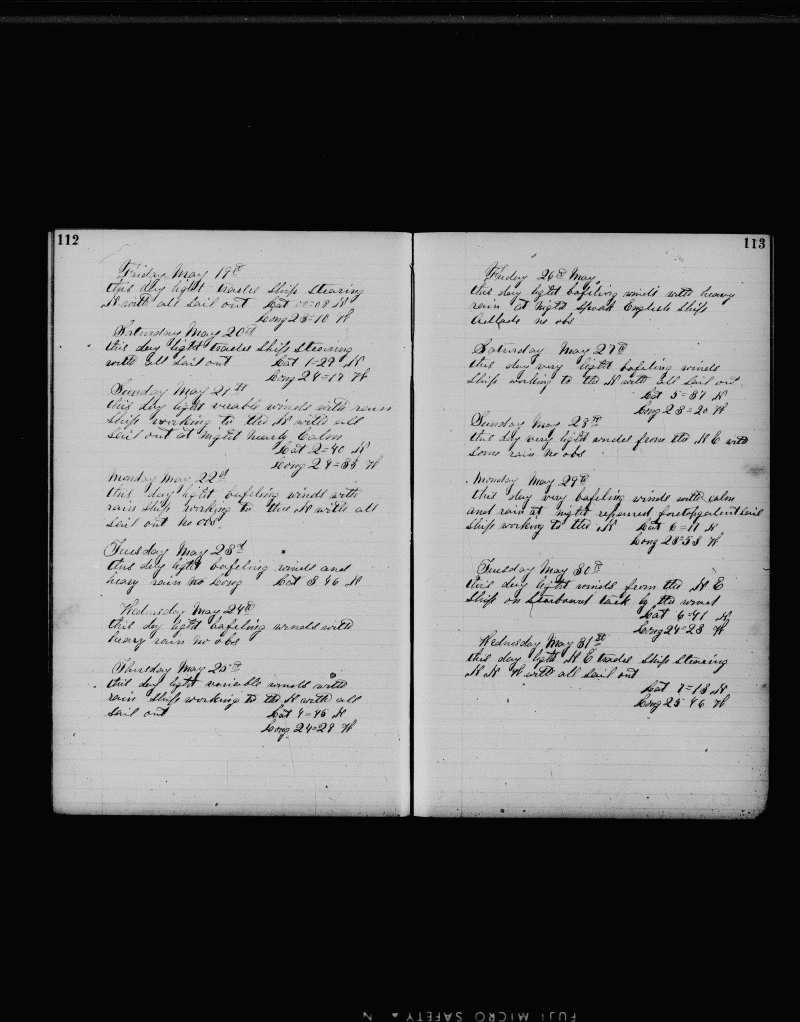 112
Friday May 19th
this day light trades Ship Stearing
N with all sail out Lat 00=08 N
Long 23=10 W
Saturday May 20th
this day light trades Ship Stearing
with all sail out Lat 1=29 N
Long 24=17 W
Sunday May 21st
this day light veable winds with rain
Ship working to the N with all
Sail out at night nearly Calm
Lat 2=40 N
Long 24=35 W
Monday May 22d
this day light bafeling winds with
rain Ship working to the N with all
sail out no obs
Tuesday May 23d
this day light bafeling winds and
heavy rain no Long Lat 3 46 N
Wednesday May 24th
this day light bafeling winds with
heavy rain no obs
Thursday May 25th
this day light variable winds with
rain Ship working to the N with all
sail out Lat 4=45 N
Long 24=29 W
113
Friday 26th May
this day light bafeling winds with heavy
rain at night Spoke English Ship
no obs
Saturday May 27th
this day very light bafeling winds
Ship working to the N with all sail out
Lat 5=37 N
Long 23=20 W
Sunday May 28th
this day very light winds from the N E with
some rain no obs
Monday May 29th
this day very bafeling winds with calm
and rain at night repaired foretopgalentsail
Ship working to the N Lat 6=11 N
Long 23=53 W
Tuesday May 30th
this day light winds from the N E
Ship on Starboard tack by the wind
Lat 6=41 N
Long 24=23 W
Wednesday May 31st
this day light N E trades Ship Stearing
N N W with all sail out
Lat 7=13 N
Long 25 46 W
FUJI MICRO SAFETY ▲ N